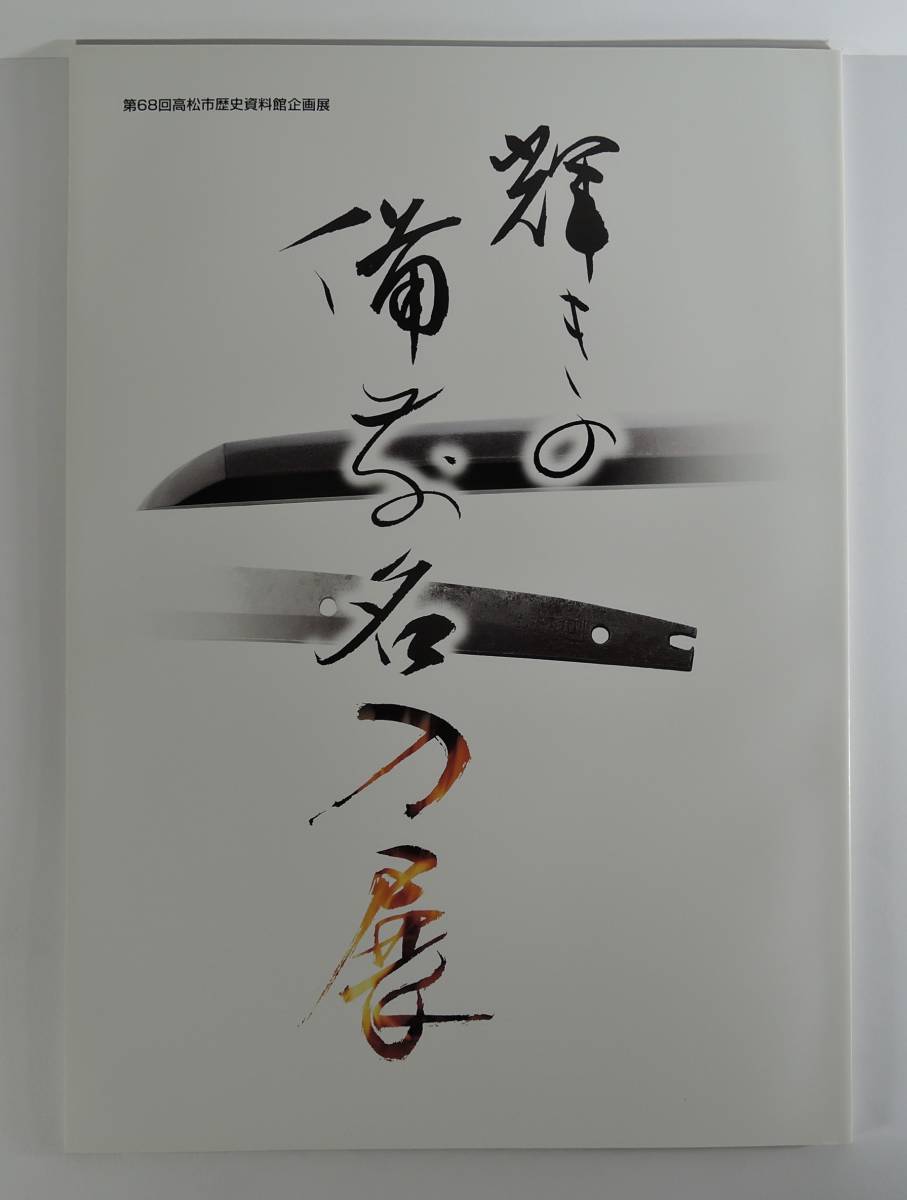 第68回高松市歴史資料館企画展
輝きの
備前名刀展